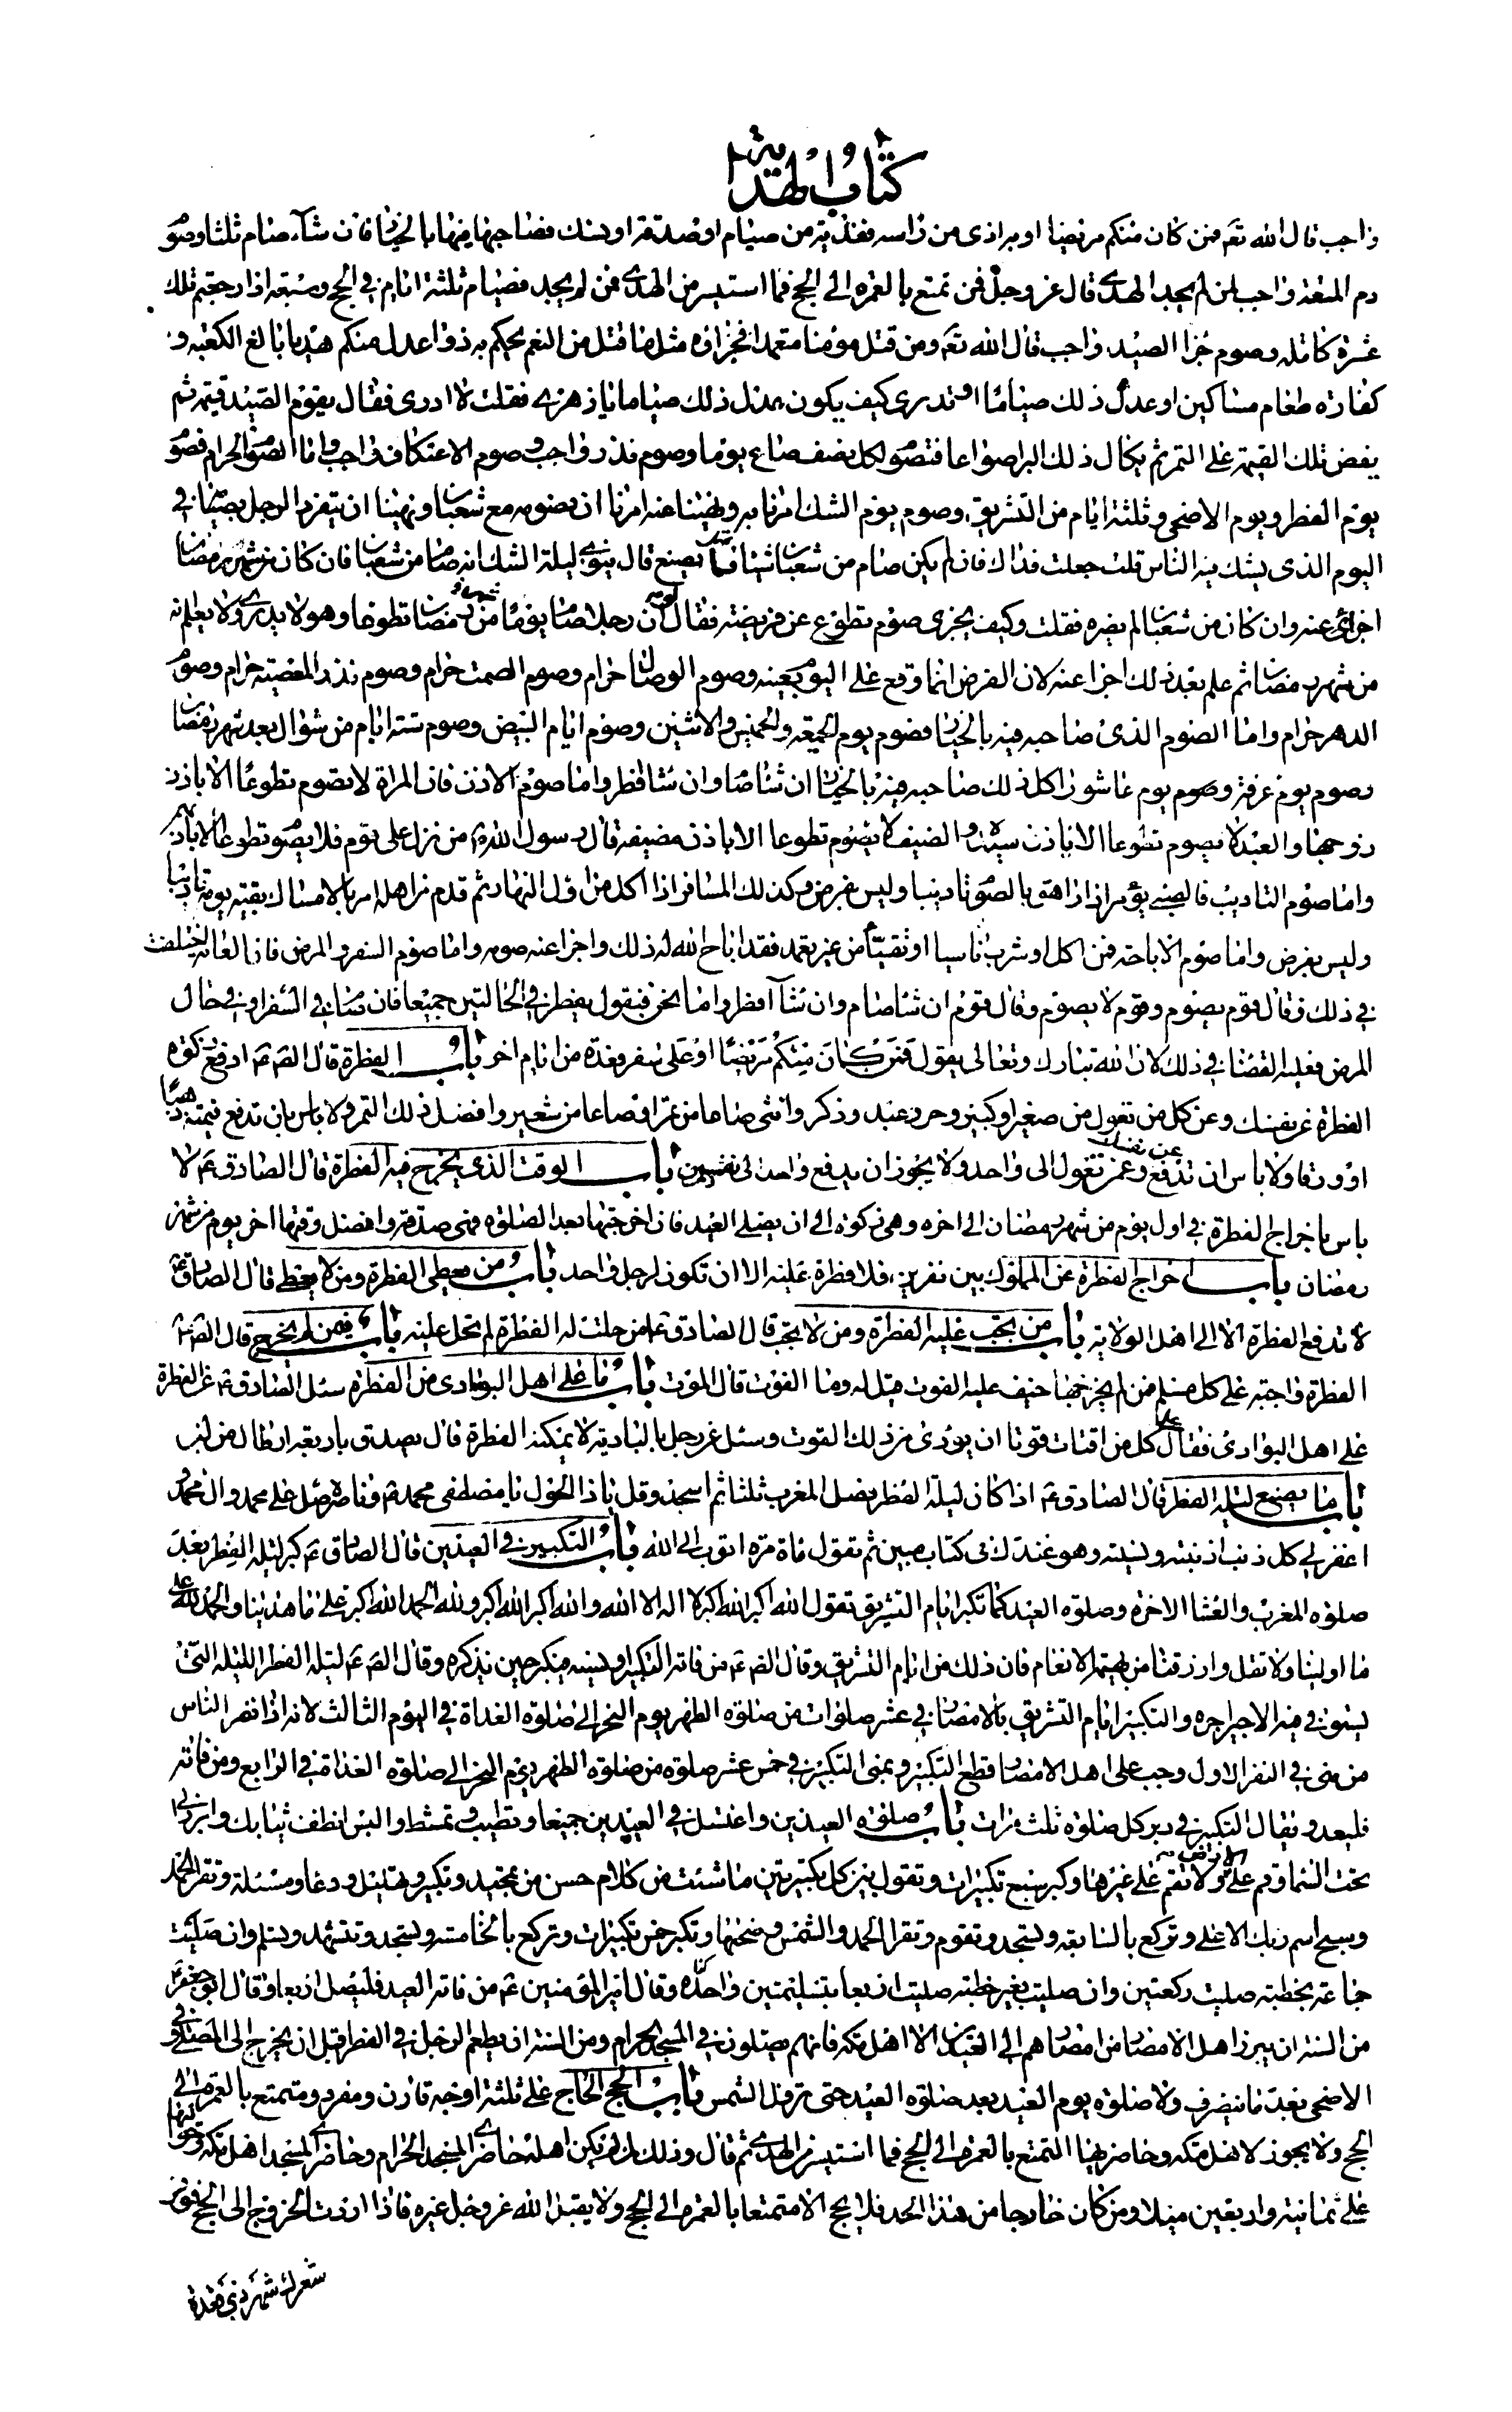 كتاب الهداية
واجب قال الله تعم فمن كان منكم مريضا او به اذى من راسه ففدية من صيام او صدقة او نسك فصاحبها فيها بالخيار فان شآء صام ثلثا وصوم
دم المتعة واجب لمن لم يجد الهدى قال عز وجل فمن تمتع بالعمرة الى الحج فما استيسر من الهدى فمن لم يجد فصيام ثلثة ايام في الحج وسبعة اذا رجعتم تلك
عشرة كاملة وصوم جزا الصيد واجب قال الله تعم ومن قتل مؤمنا متعمدا فجزاؤه مثل ما قتل من النعم يحكم به ذوا عدل منكم هديا بالغ الكعبة و
كفارة طعام مساكين او عدل ذلك صياما او تدرى كيف يكون عدل ذلك صياما يا زهرى فقلت لا ادرى فقال يقوم الصيد قيمة ثم
يفض تلك القيمة على التمر ثم يكال ذلك البر اصواعا فتصوم لكل نصف صاع يوما وصوم نذر واجب وصوم الاعتكاف واجب واما الصوم الحرام فصوم
يوم الفطر ويوم الاضحى وثلثة ايام من التشريق وصوم يوم الشك امرنا به ونهينا عنه امرنا ان نصومه مع شعبان ونهينا ان يتفرد الرجل بصيامه في
اليوم الذى يشك فيه الناس قلت جعلت فداك فان لم يكن صام من شعبان شيئا فكيف يصنع قال ينوى ليلة الشك انه صام من شعبان فان كان من شهر رمضان
اجزأ عنه وان كان من شعبان لم يضره فقلت وكيف يجزى صوم تطوع عن فريضة فقال لو ان رجلا صام يوما من شهر رمضان تطوعا وهو لا يدرى ولا يعلم انه
من شهر رمضان ثم علم بعد ذلك اجزا عنه لان الفرض انما وقع على اليوم بعينه وصوم الوصال حرام وصوم الصمت حرام وصوم نذر المعصية حرام وصوم
الدهر حرام واما الصوم الذى صاحبه فيه بالخيار فصوم يوم الجمعة والخميس والاثنين وصوم ايام البيض وصوم ستة ايام من شوال بعد شهر رمضان
وصوم يوم عرفة وصوم يوم عاشورا كل ذلك صاحبه فيه بالخيار ان شآ صام وان شآ افطر واما صوم الاذن فان المراة لا تصوم تطوعا الا باذن
زوجها والعبد لا يصوم تطوعا الا باذن سيده والضيف لا يصوم تطوعا الا باذن مضيفه قال رسول الله ص من نزل على قوم فلا يصوم تطوعا الا باذنهم
واما صوم التاديب فالصبى يؤمر اذا راهق بالصوم تاديبا وليس بفرض وكذلك المسافر اذا اكل من اول النهار ثم قدم من اهله امر بالامساك بقية يومه تاديبا
وليس بفرض واما صوم الاباحة فمن اكل او شرب ناسيا او تقيأ من غير تعمد فقد اباح الله له ذلك واجزا عنه صومه واما صوم السفر والمرض فان العامة اختلفت
في ذلك فقال قوم يصوم وقوم لا يصوم وقال قوم ان شآ صام وان شآ افطر واما نحن فنقول يفطر في الحالتين جميعا فان صام في السفر او في حال
المرض فعليه القضآ في ذلك لان الله تبارك وتعالى يقول فمن كان منكم مريضا او على سفر فعدة من ايام اخر باب الفطرة قال الصم ع م ادفع زكوة
الفطرة عن نفسك وعن كل من تعول من صغير او كبير وحر وعبد وذكر وانثى صاعا من تمر او صاعا من شعير وافضل ذلك التمر ولا باس بان تدفع قيمته ذهبا
او ورقا ولا باس ان تدفع عن نفسك وعمن تعول الى واحد ولا يجوز ان يدفع واحد الى نفسين باب الوقت الذى يخرج فيه الفطرة قال الصادق ع م لا
باس باخراج الفطرة في اول يوم من شهر رمضان الى اخره وهى زكوة الى ان يصلى العيد فان اخرجتها بعد الصلوة فهى صدقة وافضل وقتها اخر يوم من شهر
رمضان باب اخراج الفطرة عن المملوك بين نفرين فلا فطرة عليه الا ان تكون لرجل واحد باب من يعطى الفطرة ومن لا يعطى قال الصادق ع م
لا تدفع الفطرة الا الى اهل الولاية باب من يجب عليه الفطرة ومن لا يجب قال الصادق ع م من حلت له الفطرة لم تحل عليه باب فيمن لم يخرج قال الصم ع م
الفطرة واجبة على كل مسلم فمن لم يخرجها خيف عليه الفوت قيل له وما الفوت قال الموت باب ما على اهل البوادى من الفطرة سئل الصادق ع م عن الفطرة
على اهل البوادى فقال على كل من اقتات قوتا ان يؤدى من ذلك القوت وسئل عن رجل بالبادية لا يمكنه الفطرة قال يصدق باربعة ارطال من لبن
باب ما يصنع ليلة الفطر قال الصادق ع م اذا كان ليلة الفطر فصل المغرب ثلثا ثم اسجد وقل يا ذا الطول يا مصطفى محمد م وناصره صل على محمد وال محمد و
اغفر لى كل ذنب اذنبته ونسيته وهو عندك في كتاب مبين ثم تقول مأة مرة اتوب الى الله باب التكبير في العيدين قال الصادق ع م كبر ليلة الفطر بعد
صلوة المغرب والعشا الاخرة وصلوة العيد كما تكبر ايام التشريق تقول الله اكبر الله اكبر لا اله الا الله والله اكبر الله اكبر ولله الحمد الله اكبر على ما هدينا والحمد لله على
ما اولينا ولا تقل وارزقنا من بهيمة الانعام فان ذلك من ايام التشريق وقال الصم ع م من فاته التكبير او نسيه فيكبر حين يذكره وقال الصم ع م ليلة الفطر الليلة التى
يستوفى فيه الاجير اجره والتكبير ايام التشريق بالامصار في عشر صلوات من صلوة الظهر يوم النحر الى صلوة الغداة في اليوم الثالث لانه اذا نفر الناس
من منى في النفر الاول وجب على اهل الامصار قطع التكبير وبمنى التكبير في خمس عشر صلوة من صلوة الظهر يوم النحر الى صلوة الغداة في الرابع ومن فاته
فليعد ويقال التكبير في دبر كل صلوة ثلث مرات باب صلوة العيدين واغتسل في العيدين جميعا وتطيب وتمشط والبس انظف ثيابك وابرز الى
تحت السما وقم على الارض ولا تقم على غيرها وكبر سبع تكبيرات وتقول بين كل تكبيرتين ما شئت من كلام حسن من تمجيد وتكبير وتهليل ودعا ومسئلة وتقرا الحمد
وسبح اسم ربك الاعلى وتركع بالسابعة وتسجد وتقوم وتقرا الحمد والشمس وضحيها وتكبر خمس تكبيرات وتركع بالخامسة وتسجد وتتشهد وتسلم وان صليت
جماعة بخطبة صليت ركعتين وان صليت بغير خطبة صليت اربعا بتسليمتين واحدة وقال امير المؤمنين ع م من فاته العيد فليصل اربعا وقال ابو جعفر ع م
من السنة ان يبرز اهل الامصار من امصارهم الى العيدين الا اهل مكة فانهم يصلون في المسجد الحرام ومن السنة ان يطعم الرجل في الفطر قبل ان يخرج الى المصلى وفي
الاضحى بعد ما ينصرف ولا صلوة يوم العيد بعد صلوة العيد حتى تزول الشمس باب الحج الحاج على ثلثة اوجه قارن ومفرد ومتمتع بالعمرة الى
الحج ولا يجوز لاهل مكة وحاضريها التمتع بالعمرة الى الحج فما استيسر من الهدى ثم قال وذلك لمن لم يكن اهله حاضرى المسجد الحرام وحاضرى المسجد اهل مكة وحواليها
على ثمانية واربعين ميلا ومن كان خارجا من هذا الحد فلا يحج الا متمتعا بالعمرة الى الحج ولا يقبل الله عز وجل غيره فاذا اردت الخروج الى الحج فوفر
شعرك شهر ذى قعدة